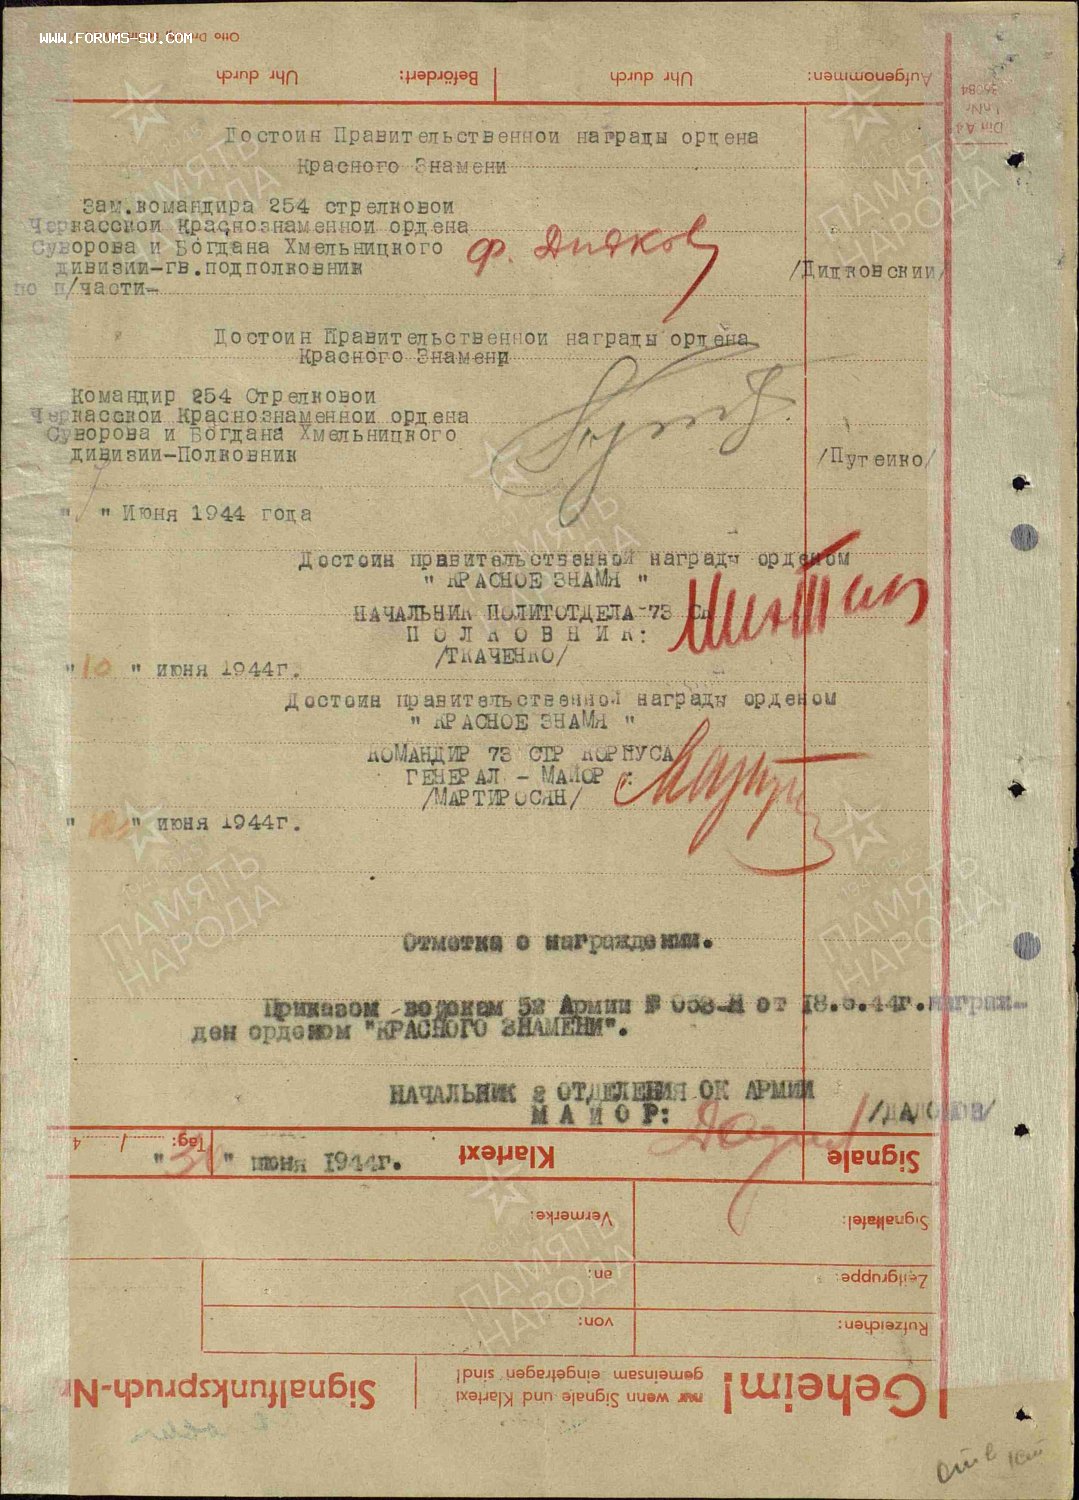 WWW.FORUMS-SU.COM
Otto Dr
Aufgenommen: Uhr durch Befördert: Uhr durch
Din A 4
LnNr
36084
Достоин Правительственной награды ордена
Красного Знамени
Зам.командира 254 стрелковой
Черкасской Краснознаменной ордена
Суворова и Богдана Хмельницкого
дивизии-гв.подполковник
по п/части-
/Дидковский/
Достоин Правительственной награды ордена
Красного Знамени
Командир 254 Стрелковой
Черкасской Краснознаменной ордена
Суворова и Богдана Хмельницкого
дивизии-Полковник
/Путейко/
"7" Июня 1944 года
Достоин правительственной награды орденом
" КРАСНОЕ ЗНАМЯ "
НАЧАЛЬНИК ПОЛИТОТДЕЛА 73 СК
П О Л К О В Н И К :
/ТКАЧЕНКО/
"10" июня 1944г.
Достоин правительственной награды орденом
" КРАСНОЕ ЗНАМЯ "
КОМАНДИР 73 СТР КОРПУСА
ГЕНЕРАЛ - МАЙОР :
/МАРТИРОСЯН/
" " июня 1944г.
Отметка о награждении.
Приказом войскам 52 Армии № 058-Н от 18.6.44г. награж-
ден орденом "КРАСНОГО ЗНАМЕНИ".
НАЧАЛЬНИК 2 ОТДЕЛЕНИЯ ОК АРМИИ
М А Й О Р :
/ДАДОНОВ/
" " июня 1944г.
Signale Klartext Tag: / 4
Signaltafel: Vermerke:
Zeitgruppe: an:
Rufzeichen: von:
Geheim! nur wenn Signale und Klartext
gemeinsam eingetragen sind!
Signalfunkspruch-Nr
ПАМЯТЬ
НАРОДА